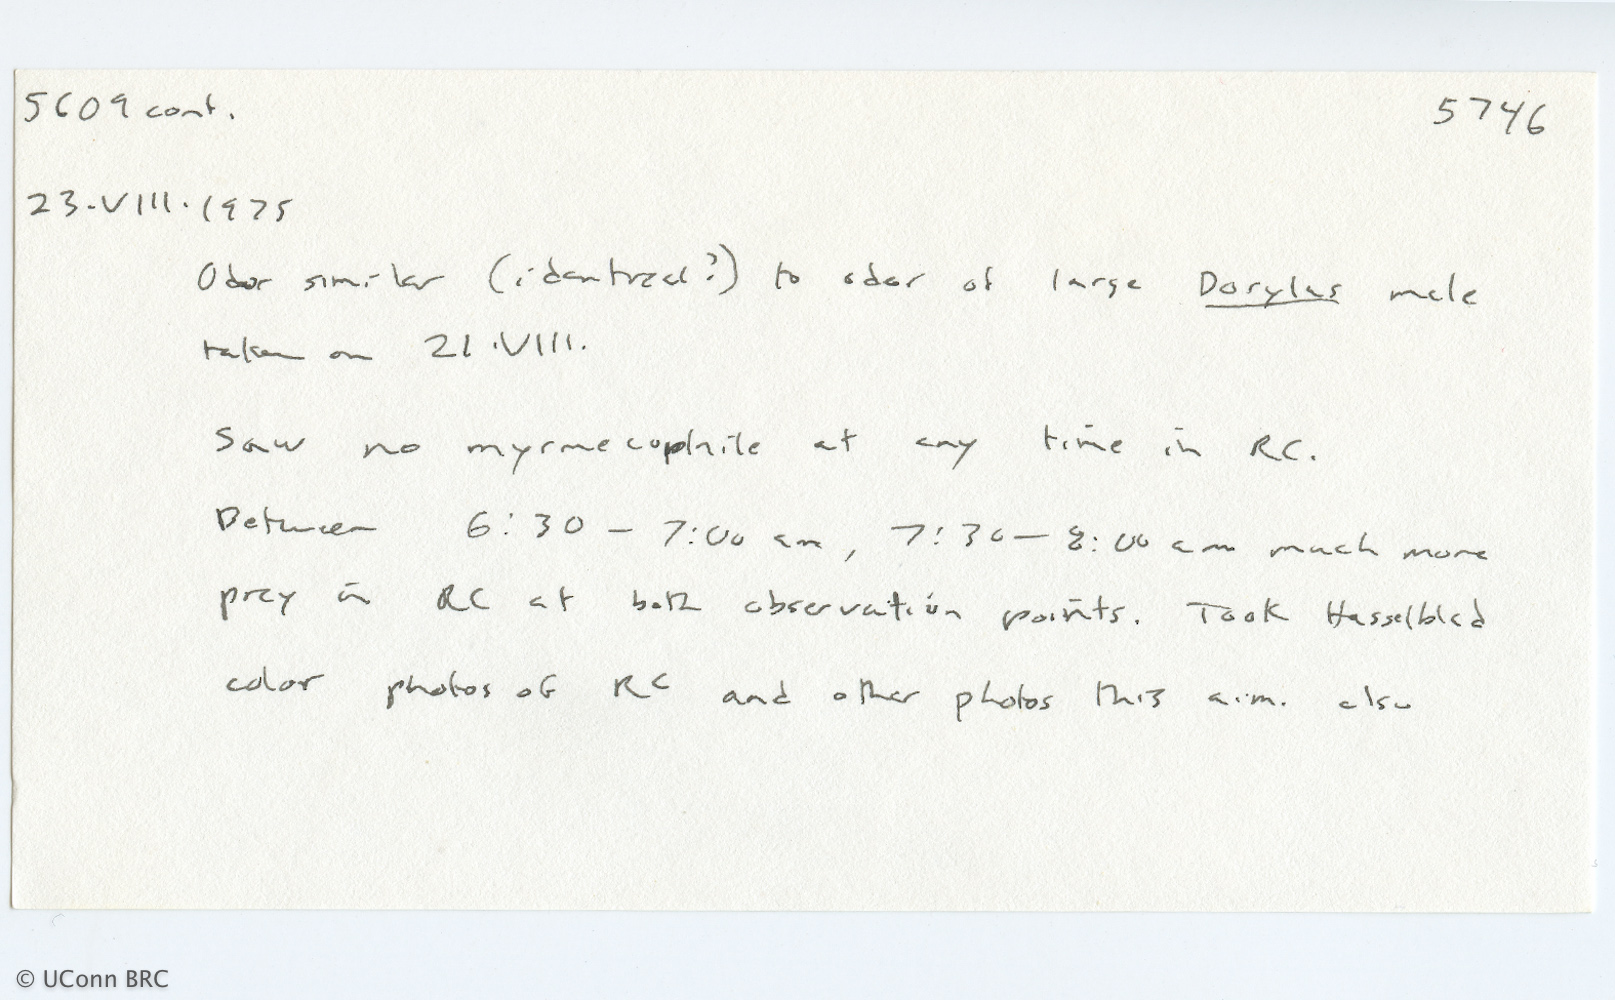 5609 cont. 5746
23.VIII.1975
Odor similar (identical?) to odor of large Dorylus male
taken on 21.VIII.
Saw no myrmecophile at any time in RC.
Between 6:30 – 7:00 am, 7:30 – 8:00 am much more
prey in RC at both observation points. Took Hasselblad
color photos of RC and other photos this a.m. also
© UConn BRC